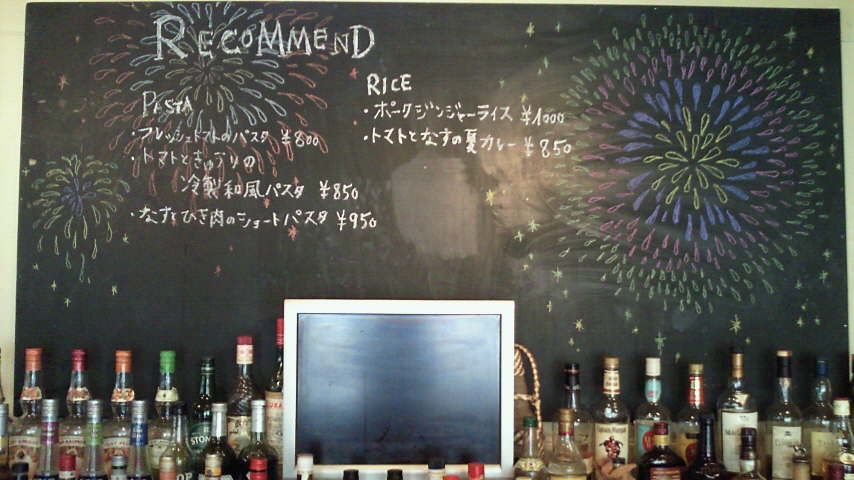 RECOMMEND
PASTA
・フレッシュトマトのパスタ ¥800
・トマトときゅうりの
冷製和風パスタ ¥850
・なすとひき肉のショートパスタ ¥950
RICE
・ポークジンジャーライス ¥1000
・トマトとなすの夏カレー ¥850